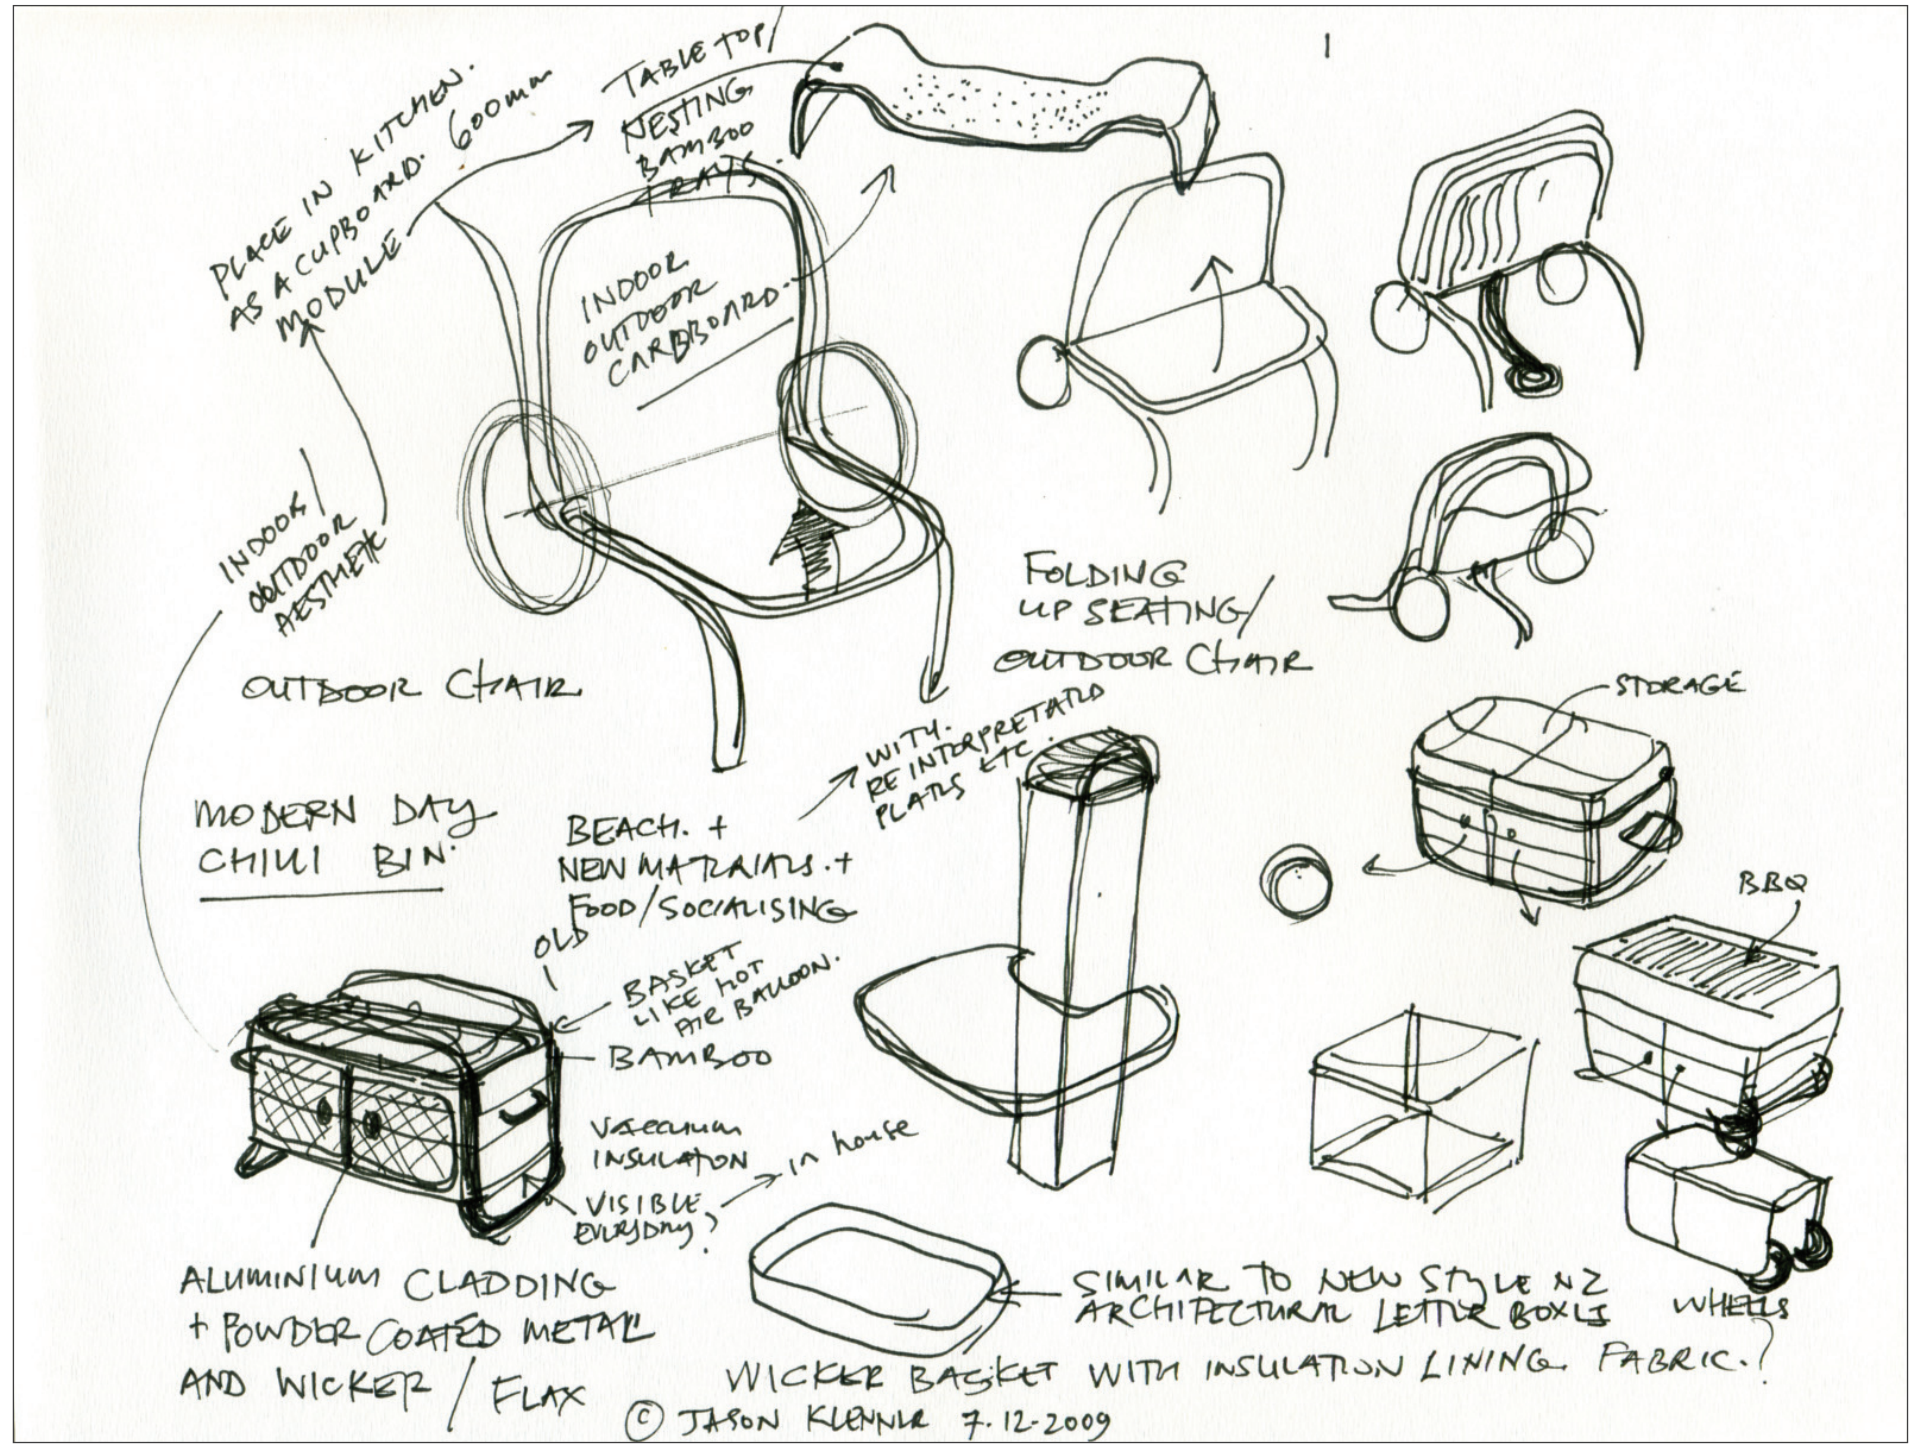 1
PLACE IN KITCHEN.
AS A CUPBOARD. 600mm
MODULE
TABLE TOP/
NESTING
BAMBOO
TRAYS.
INDOOR
OUTDOOR
CARBBOARD.
INDOOR/
OUTDOOR
AESTHETIC
OUTDOOR CHAIR
FOLDING
UP SEATING/
OUTDOOR CHAIR
STORAGE
WITH.
REINTERPRETATED
PLATES ETC.
MODERN DAY
CHILLI BIN.
BEACH. +
NEW MATERIALS. +
FOOD/SOCIALISING
OLD
BASKET
LIKE HOT
AIR BALLOON.
BAMBOO
BBQ
VACCUUM
INSULATION
VISIBLE
EVERYDAY?
in house
ALUMINIUM CLADDING
+ POWDER COATED METAL
AND WICKER / FLAX
SIMILAR TO NEW STYLE NZ
ARCHITECTURAL LETTER BOXES
WHEELS
WICKER BASKET WITH INSULATION LINING FABRIC.?
© JASON KLENNER 7.12-2009